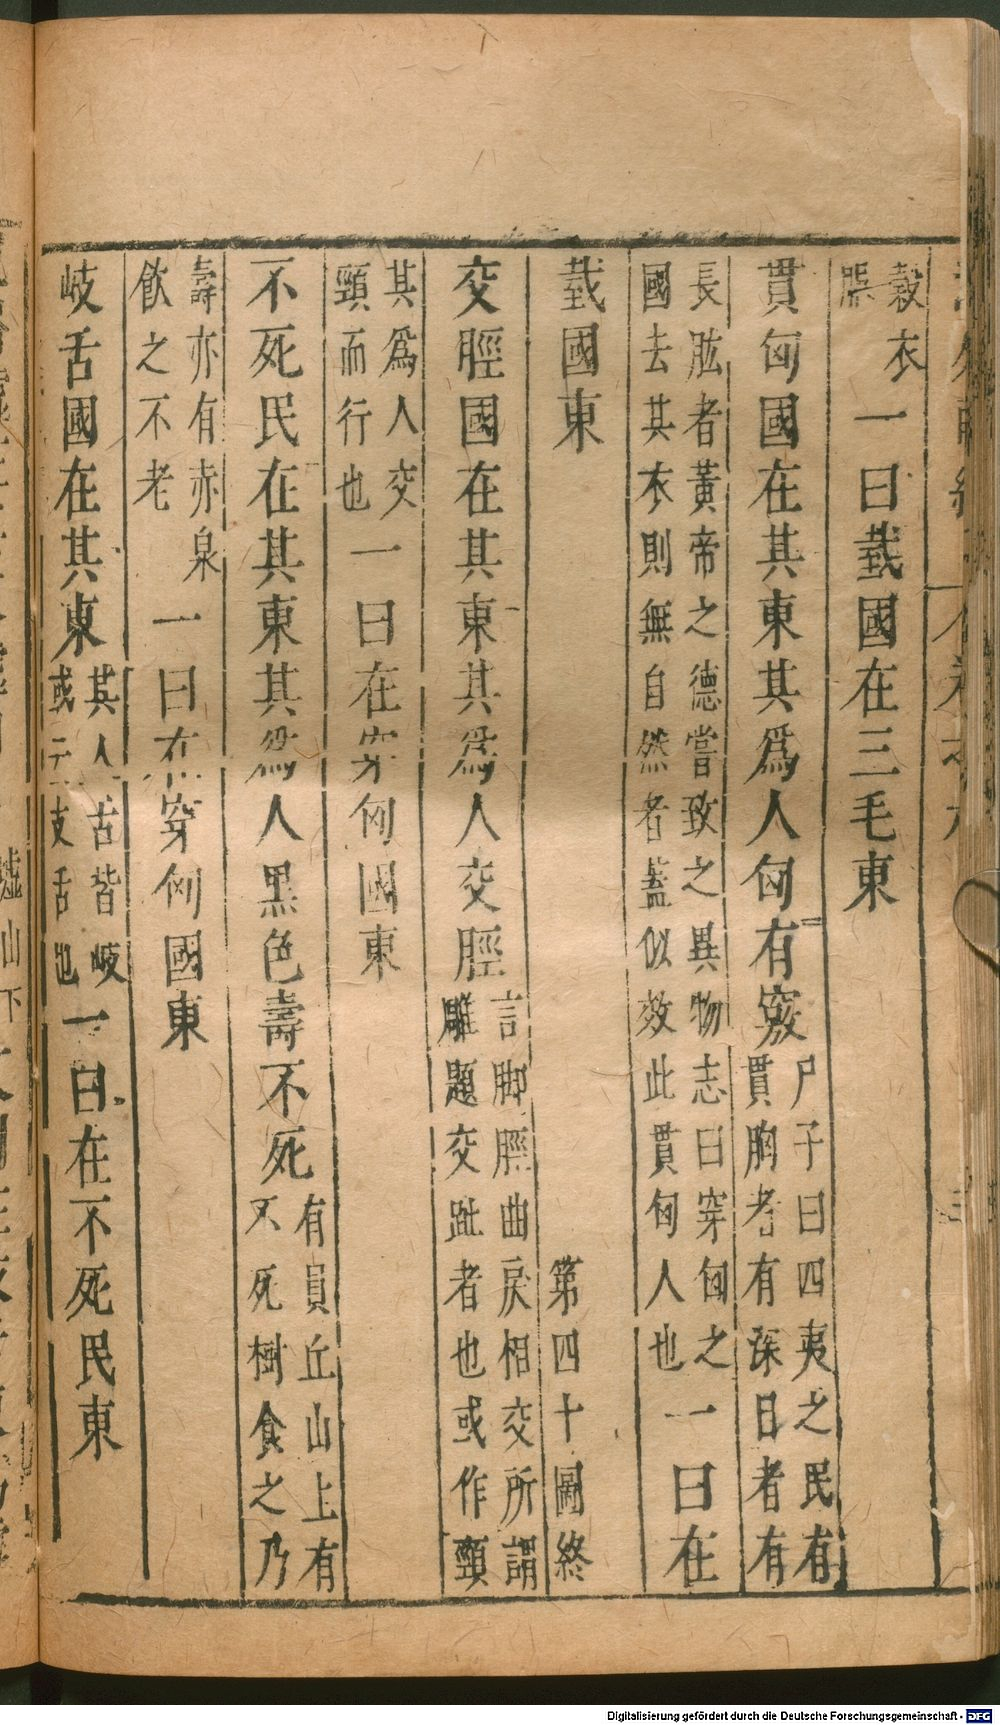 穀衣服一曰臷國在三毛東
貫匈國在其東其爲人匈有竅尸子曰四夷之民有貫胸者有深目者有
長肱者黃帝之德嘗致之異物志曰穿匈之國去其衣則無自然者蓋似效此貫匈人也一曰在
臷國東 第四十圖終
交脛國在其東其爲人交脛言脚脛曲戾相交所謂雕題交趾者也或作頸
其爲人交頸而行也一曰在穿匈國東
不死民在其東其爲人黑色壽不死有員丘山上有不死樹食之乃
壽亦有赤泉飲之不老一曰在穿匈國東
岐舌國在其東其人舌皆岐或云支舌也一曰在不死民東
Digitalisierung gefördert durch die Deutsche Forschungsgemeinschaft - DFG